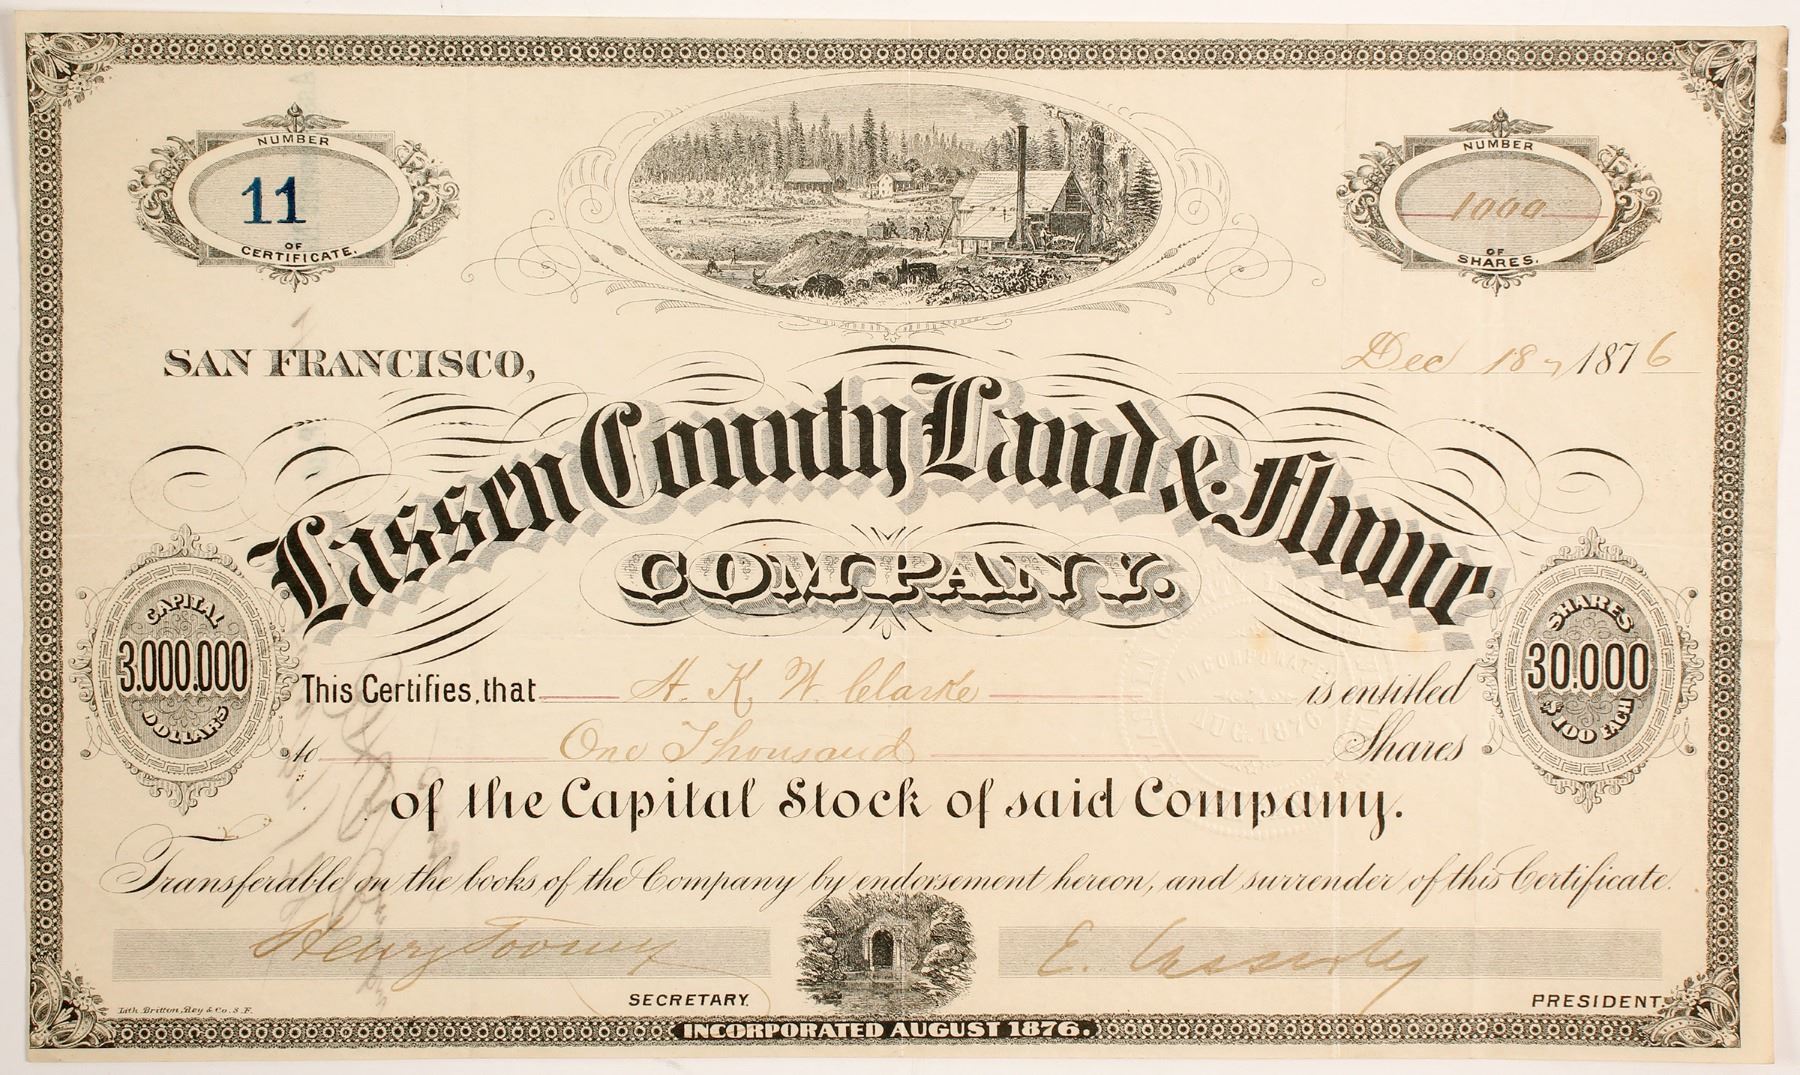 NUMBER
11
OF
CERTIFICATE.
NUMBER
1000
OF
SHARES.
SAN FRANCISCO,
Dec 18, 1876
Lassen County Land & Flume
COMPANY.
CAPITAL
3.000.000
DOLLARS
SHARES
30.000
$100 EACH
This Certifies, that H. K. W. Clarke is entitled
to One Thousand Shares
of the Capital Stock of said Company.
INCORPORATED
AUG. 1876
Transferable on the books of the Company by endorsement hereon, and surrender of this Certificate.
Henry Toomy
E. Casserley
SECRETARY.
PRESIDENT.
Lith. Britton, Rey & Co. S. F.
INCORPORATED AUGUST 1876.